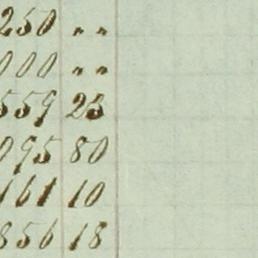 250 " "
000 " "
559 23
095 80
161 10
856 18